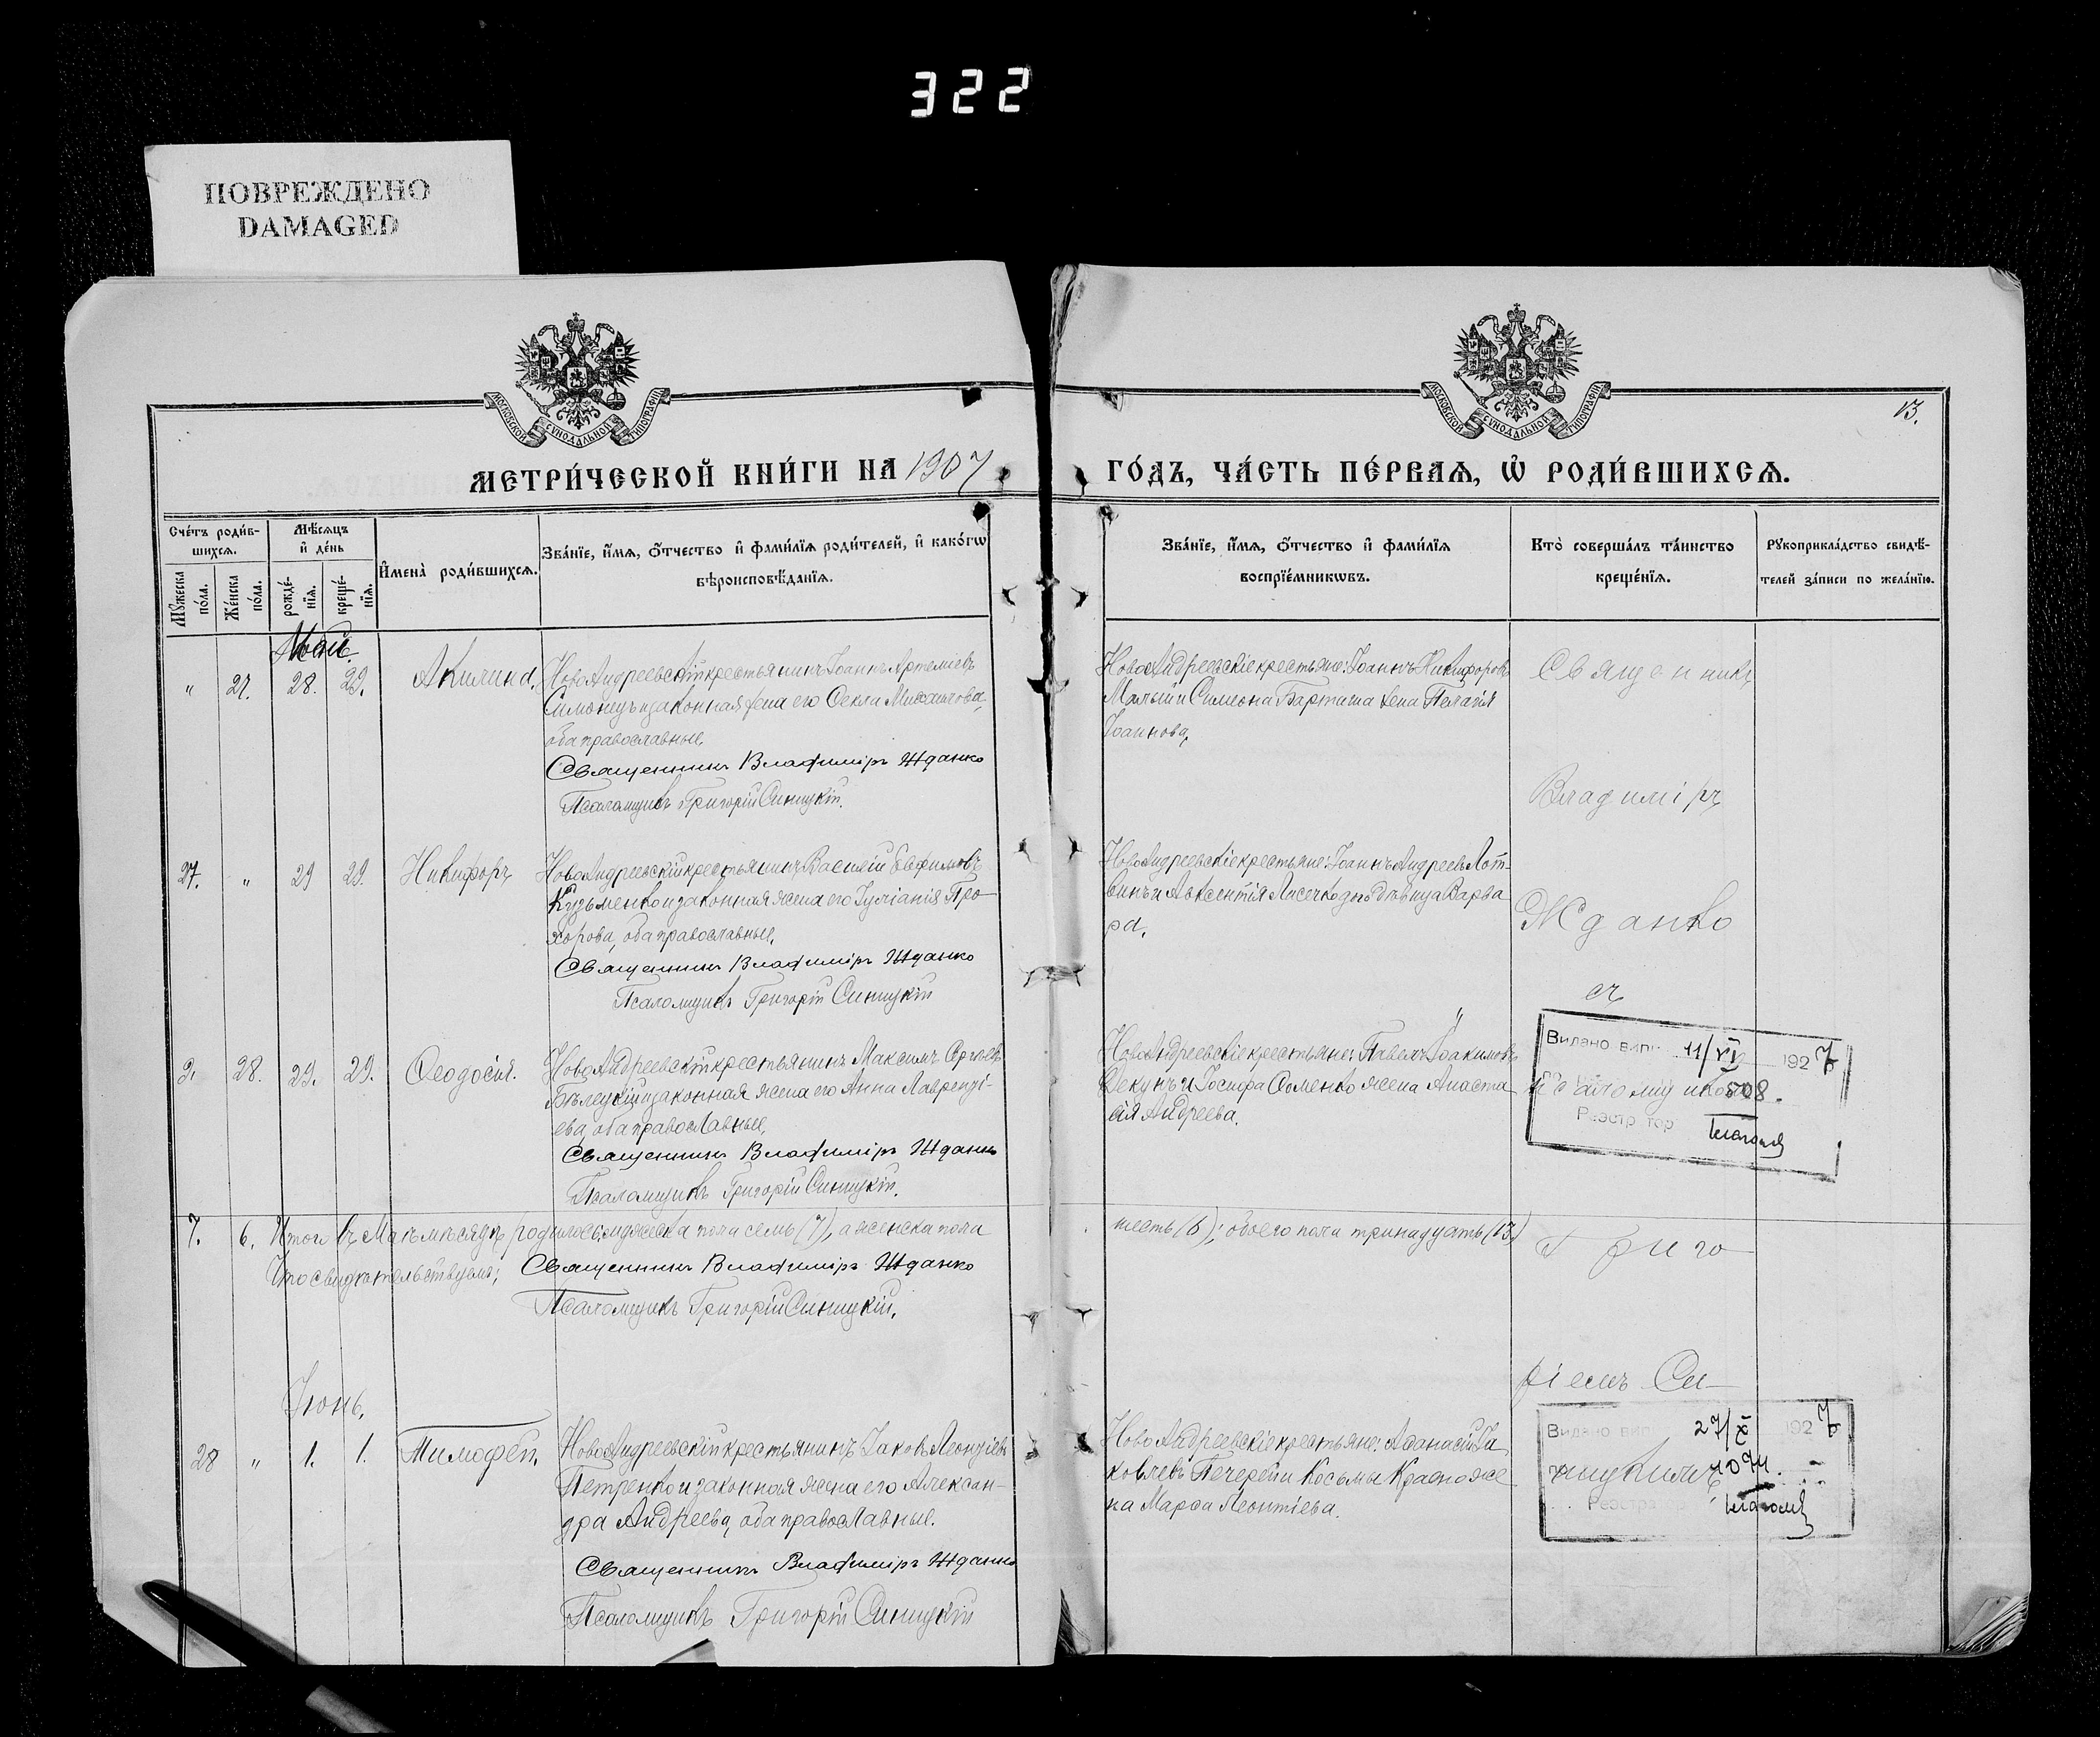 322
ПОВРЕЖДЕНО
DAMAGED
МОСКОВСКОЙ СУНОДАЛЬНОЙ ТИПОГРАФІИ
МОСКОВСКОЙ СУНОДАЛЬНОЙ ТИПОГРАФІИ
13.
МЕТРИ́ЧЕСКОЙ КНИ́ГИ НА 1907
ГО́ДЪ, ЧА́СТЬ ПЕ́РВАѦ, Ѡ҆ РОДИ́ВШИХСѦ.
Сче́тъ роди́в-
шихсѧ.
Мѣ́сѧцъ
и҆ де́нь
Мꙋ́жеска
по́ла.
Же́нска
по́ла.
рожде́-
нїѧ.
креще́-
нїѧ.
И҆мена̀ роди́вшихсѧ.
Зва́нїе, и҆́мѧ, ѻ҆́тчество и҆ фами́лїѧ роди́телей, и҆ како́гѡ
вѣроисповѣ́данїѧ.
Зва́нїе, и҆́мѧ, ѻ҆́тчество и҆ фами́лїѧ
воспрїе́мникѡвъ.
Кто̀ соверша́лъ та́инство
креще́нїѧ.
Рꙋкоприкла́дство свидѣ́-
телей за́писи по жела́нїю.
Май.
" 27. 28. 29. Акилина.
НовоАндреевскій крестьянинъ Іоаннъ Артеміевъ
Симонецъ и законная жена его Ѳекла Михаилова,
оба православные.
Священникъ Владиміръ Жданко
Псаломщикъ Григорій Синицкій.
НовоАндреевскіе крестьяне: Іоаннъ Никифоровъ
Малый и Симеона Бартыша жена Пелагія
Іоаннова,
Священникъ
Владиміръ
27. " 29 29. Никифоръ
НовоАндреевскій крестьянинъ Василій Евфимовъ
Кузьменко и законная жена его Іуліанія Про-
хорова, оба православные.
Священникъ Владиміръ Жданко
Псаломщикъ Григорій Синицкій
НовоАндреевскіе крестьяне: Іоаннъ Андреевъ Лот-
винъ и Авксентія Лисечко дѣвица Варва
ра.
Жданко
съ
28. 29. 29. Ѳеодосія.
НовоАндреевскій крестьянинъ Максимъ Сергіевъ
Бѣлецкій и законная жена его Анна Лаврентi-
ева, оба православные,
Священникъ Владиміръ Жданко
Псаломщикъ Григорій Синицкій.
НовоАндреевскіе крестьяне: Павелъ Іоакимовъ
Декунъ и Іосифа Соменко жена Анаста
сія Андреева.
Видано вип 11/VI 1927
псаломщикомъ 508.
Реєстр тор
7. 6. Итого въ Маѣ мѣсяцѣ родилось: мужеска пола семь (7), а женска пола
шесть (6); обоего пола тринадцать (13)
Что свидѣтельствуемъ: Священникъ Владиміръ Жданко
Псаломщикъ Григорій Синицкій.
Григо
ріемъ Си-
Іюнь.
28 " 1. 1. Тимофей.
НовоАндреевскій крестьянинъ Іаковъ Леонтіевъ
Петренко и законная жена его Алексан-
дра Андреева, оба православные.
Священникъ Владиміръ Жданко
Псаломщикъ Григорій Синицкій
НовоАндреевскіе крестьяне: Аѳанасій Іа
ковлевъ Печерей и Косьмы Красно же
на Марѳа Леонтіева.
Видано вип 27/X 1927
ницкимъ 1074.
Реєстра